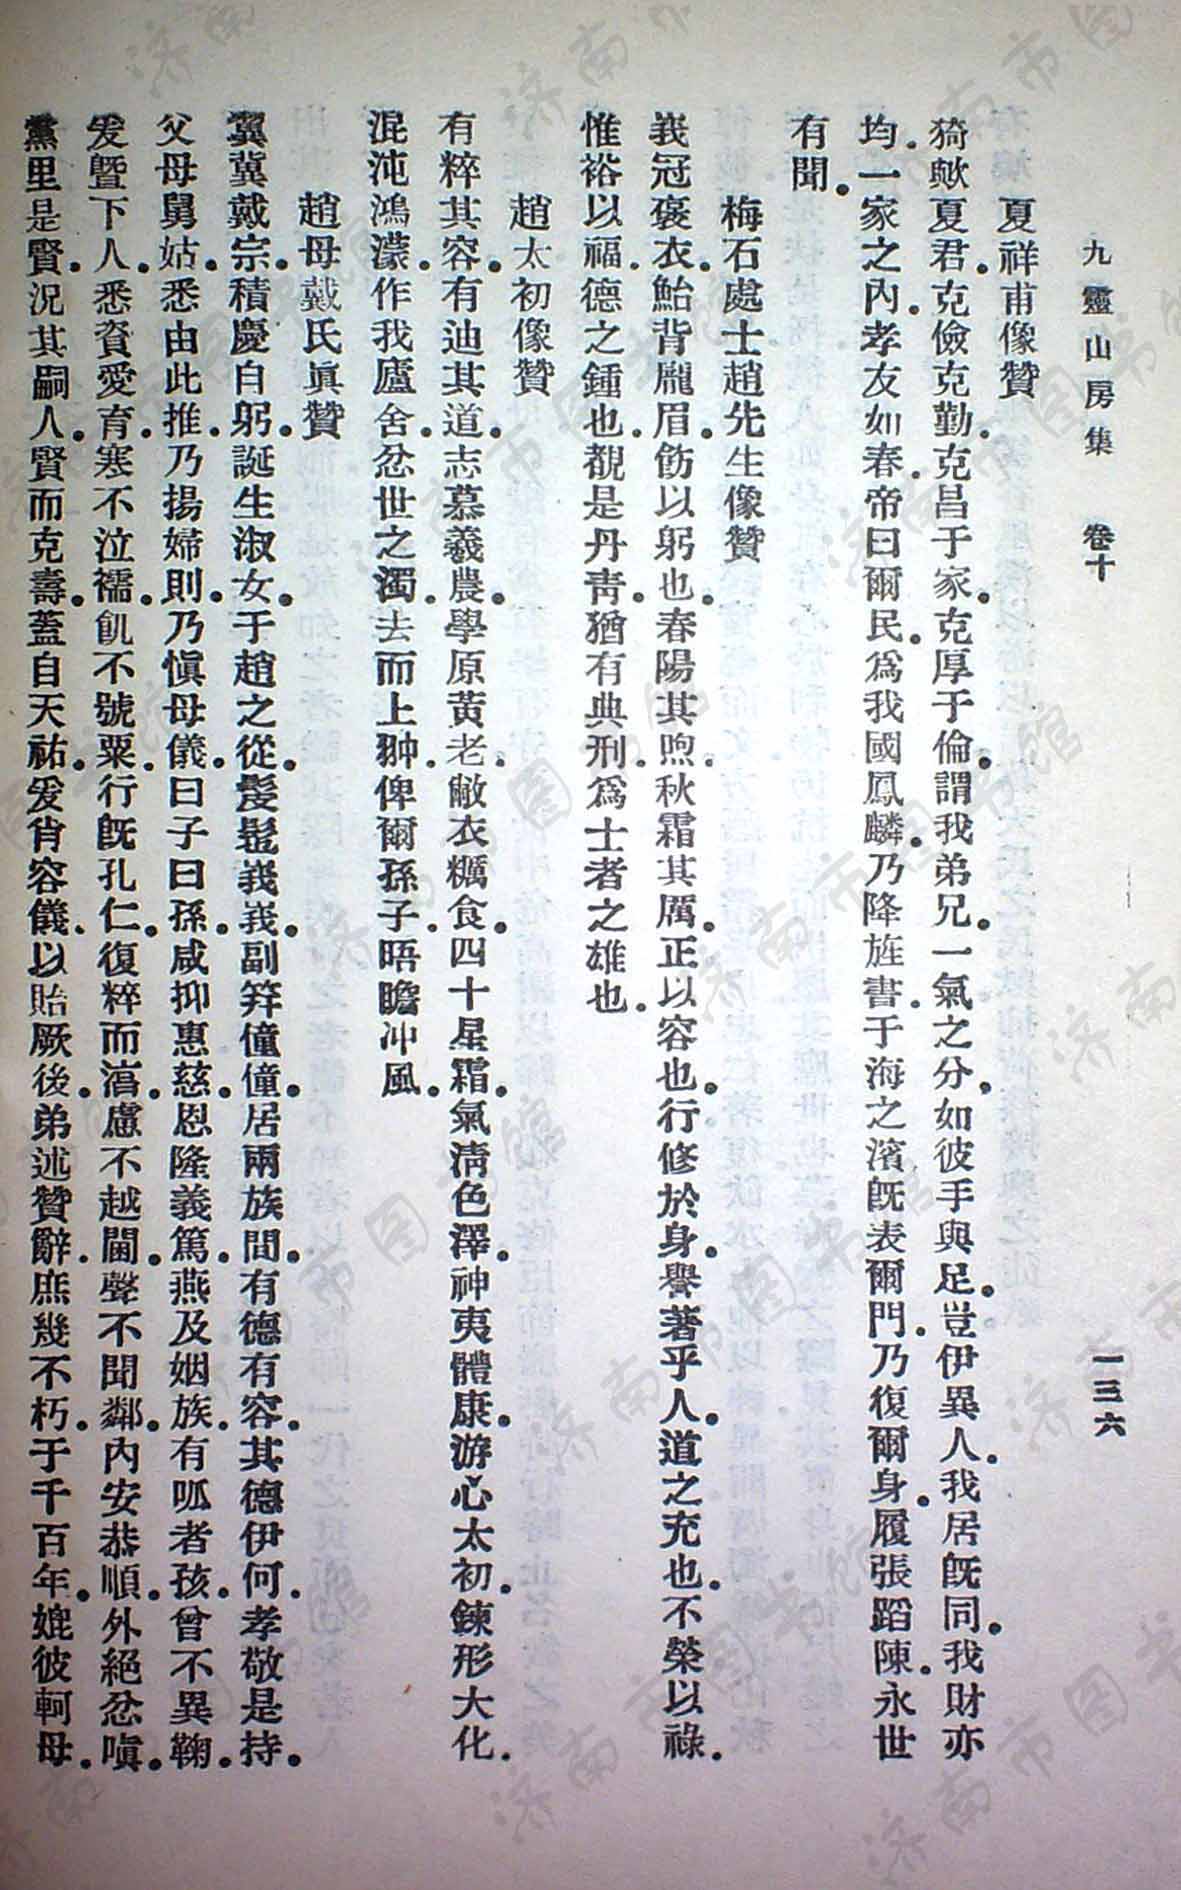 九靈山房集 卷十 一三六
夏祥甫像贊
猗歟夏君。克儉克勤。克昌于家。克厚于倫。謂我弟兄。一氣之分。如彼手與足。豈伊異人。我居旣同。我財亦
均。一家之內。孝友如春。帝曰爾民。爲我國鳳麟。乃降旌書。于海之濱。旣表爾門。乃復爾身。履張蹈陳。永世
有聞。
梅石處士趙先生像贊
峩冠褒衣。鮐背龐眉。飭以躬也。春陽其煦。秋霜其厲。正以容也。行修於身。譽著乎人。道之充也。不榮以祿。
惟裕以福。德之鍾也。覩是丹靑。猶有典刑。爲士者之雄也。
趙太初像贊
有粹其容。有迪其道。志慕羲農。學原黃老。敝衣糲食。四十星霜。氣淸色澤。神夷體康。游心太初。鍊形大化。
混沌鴻濛。作我廬舍。忿世之濁。去而上翀。俾爾孫子。晤瞻冲風。
趙母戴氏眞贊
翼翼戴宗。積慶白躬。誕生淑女。于趙之從。髮髢峩峩。副笄僮僮。居兩族間。有德有容。其德伊何。孝敬是持。
父母舅姑。悉由此推。乃揚婦則。乃愼母儀。曰子曰孫。咸抑惠慈。恩隆義篤。燕及姻族。有呱者孩。曾不異鞠。
爰曁下人。悉資愛育。寒不泣襦。飢不號粟。行旣孔仁。復粹而㵙。慮不越閫。聲不聞鄰。內安恭順。外絕忿嗔。
黨里是賢。況其嗣人。賢而克壽。蓋自天祐。爰肖容儀。以貽厥後。弟述贊辭。庶幾不朽。于千百年。媲彼軻母。